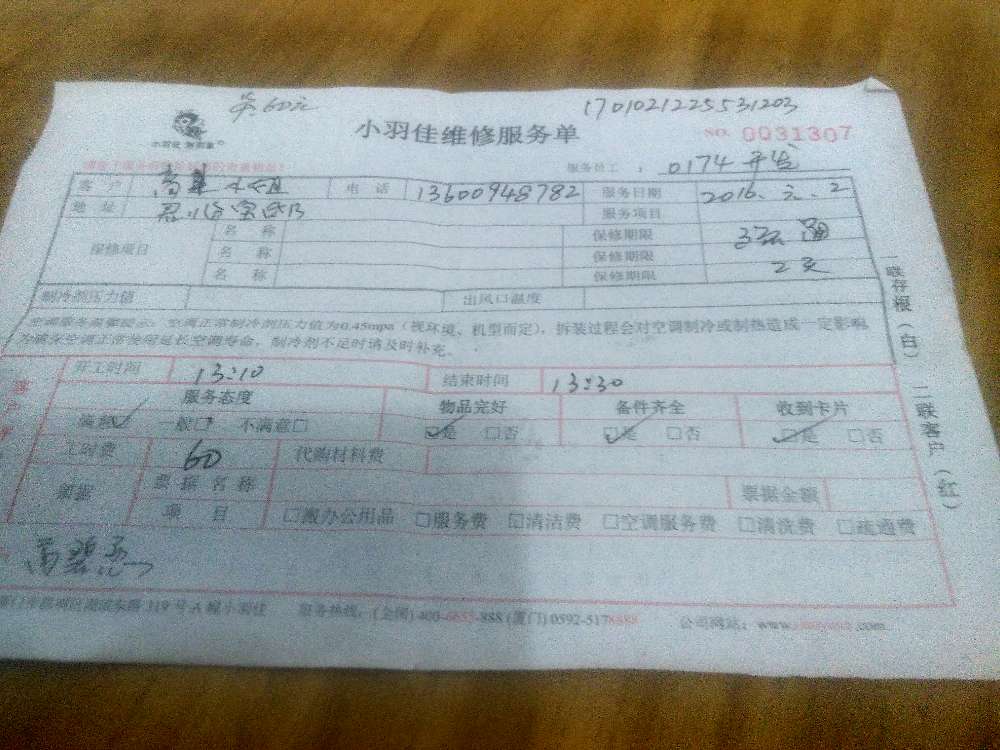 60元 170102122553 1203
小羽佳维修服务单 NO. 0031307
小羽佳
服务员工: 0174
客户 电话 13600948782 服务日期 2016.元.2
地址 服务项目
保修项目 名称 保修期限
名称 保修期限
名称 保修期限 2天
制冷剂压力值 出风口温度
空调服务温馨提示:空调正常制冷剂压力值为0.45mpa(视环境、机型而定),拆装过程会对空调制冷或制热造成一定影响
为确保空调正常使用延长空调寿命,制冷剂不足时请及时补充。
开工时间 13:10 结束时间 13:30
服务态度 物品完好 备件齐全 收到卡片
满意 一般□ 不满意□ □是 □否 □是 □否 □是 □否
工时费 60 代购材料费
票据 票据名称 票据金额
项目 □搬办公用品 □服务费 □清洁费 □空调服务费 □清洗费 □疏通费
119号A幢小羽佳 服务热线:(全国)400-6655-888 (厦门) 0592-5178888 公司网站:www. .com
一联存根(白) 二联客户(红)